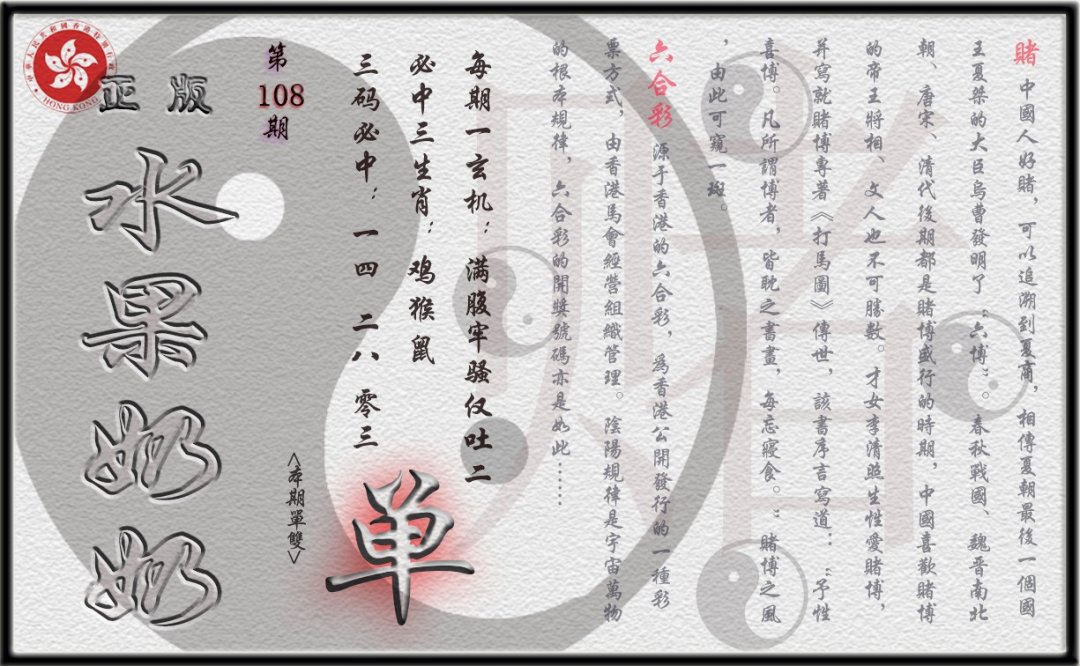 賭 中國人好賭，可以追溯到夏商，相傳夏朝最後一個國
王夏桀的大臣烏曹發明了“六博”。春秋戰國、魏晉南北
朝、唐宋、清代後期都是賭博盛行的時期，中國喜歡賭博
的帝王將相、文人也不可勝數。才女李清照生性愛賭博，
并寫就賭博專著《打馬圖》傳世，該書序言寫道：“予性
喜博。凡所謂博者，皆耽之書畫，每忘寢食。”賭博之風
，由此可窺一斑。
六合彩 源于香港的六合彩，為香港公開發行的一種彩
票方式，由香港馬會經營組織管理。陰陽規律是宇宙萬物
的根本規律，六合彩的開獎號碼亦是如此……
每期一玄机：满腹牢骚仅吐二
必中三生肖：鸡猴鼠
三码必中：一四 二八 零三
单
<本期單雙>
第
108
期
正版
水果奶奶
HONG KONG
賭